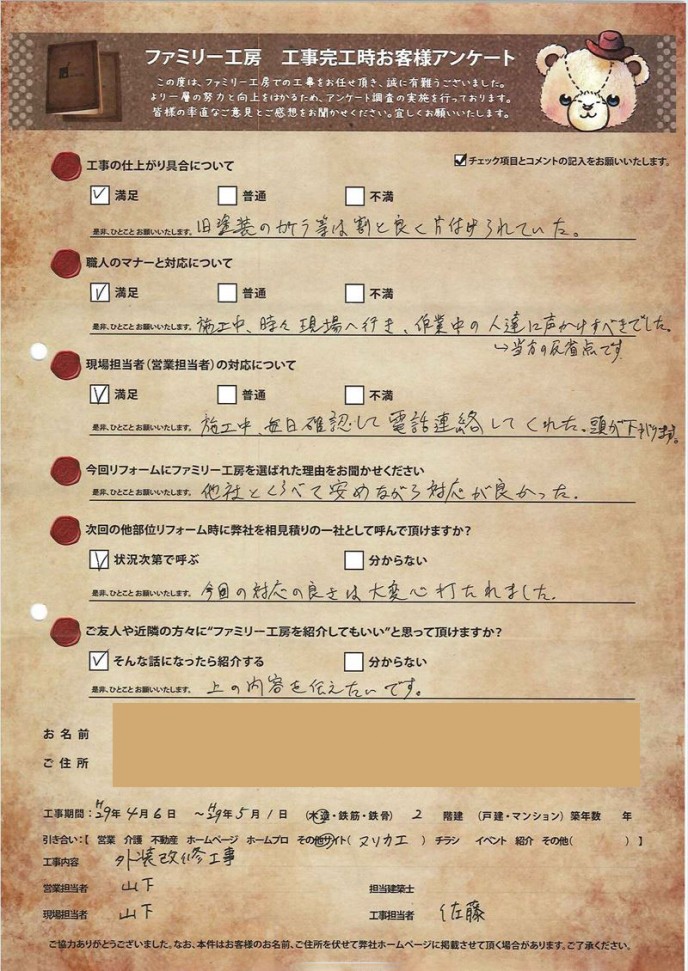 ファミリー工房 工事完工時お客様アンケート
この度は、ファミリー工房での工事をお任せ頂き、誠に有難うございました。
より一層の努力と向上をはかるため、アンケート調査の実施を行っております。
皆様の率直なご意見とご感想をお聞かせください。宜しくお願いいたします。
工事の仕上がり具合について
チェック項目とコメントの記入をお願いいたします。
満足 普通 不満
是非、ひとことお願いいたします。 旧塗装のガラ等は割と良く片付けられていた。
職人のマナーと対応について
満足 普通 不満
是非、ひとことお願いいたします。 施工中、時々現場へ行き、作業中の人達に声かけすべきでした。
→当方の反省点です
現場担当者(営業担当者)の対応について
満足 普通 不満
是非、ひとことお願いいたします。 施工中、毎日確認して電話連絡してくれた。頭が下がります。
今回リフォームにファミリー工房を選ばれた理由をお聞かせください
是非、ひとことお願いいたします。 他社とくらべて安めながら対応が良かった。
次回の他部位リフォーム時に弊社を相見積りの一社として呼んで頂けますか?
状況次第で呼ぶ 分からない
是非、ひとことお願いいたします。 今回の対応の良さは大変心打たれました。
ご友人や近隣の方々に“ファミリー工房を紹介してもいい”と思って頂けますか?
そんな話になったら紹介する 分からない
是非、ひとことお願いいたします。 上の内容を伝えたいです。
お名前
ご住所
工事期間:H29年4月6日 ～H29年5月1日 (木造・鉄筋・鉄骨) 2 階建 (戸建・マンション) 築年数 年
引き合い:【 営業 介護 不動産 ホームページ ホームプロ その他サイト( ヌリカエ ) チラシ イベント 紹介 その他( ) 】
工事内容 外装改修工事
営業担当者 山下 担当建築士
現場担当者 山下 工事担当者 佐藤
ご協力ありがとうございました。なお、本件はお客様のお名前、ご住所を伏せて弊社ホームページに掲載させて頂く場合があります。ご了承ください。